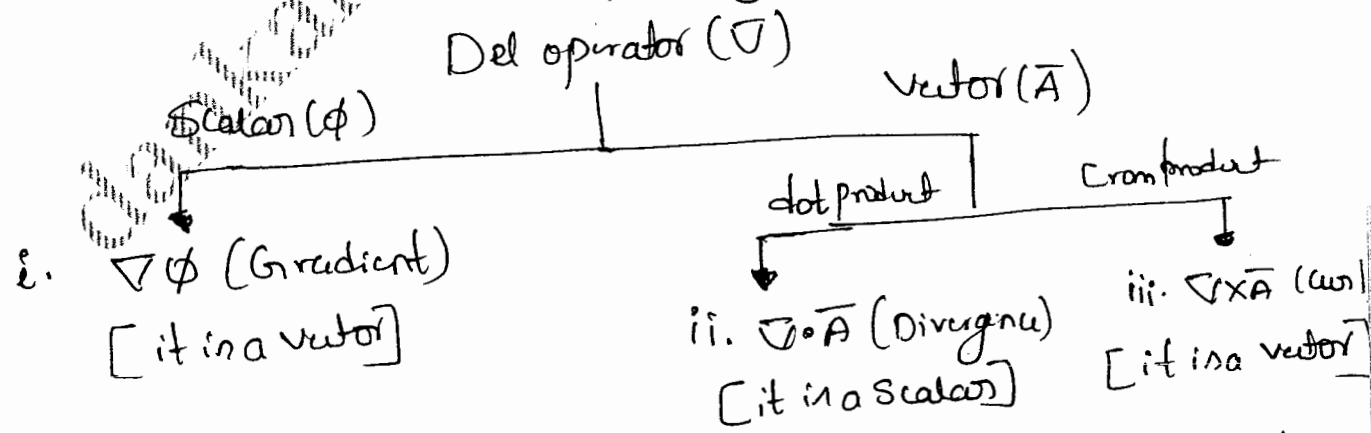 Del operator (∇)
Scalar (ϕ)
Vector (A̅)
dot product
Cross product
i. ∇ϕ (Gradient)
[it is a vector]
ii. ∇•A̅ (Divergence)
[it is a Scalar]
iii. ∇×A̅ (Curl
[it is a vector]